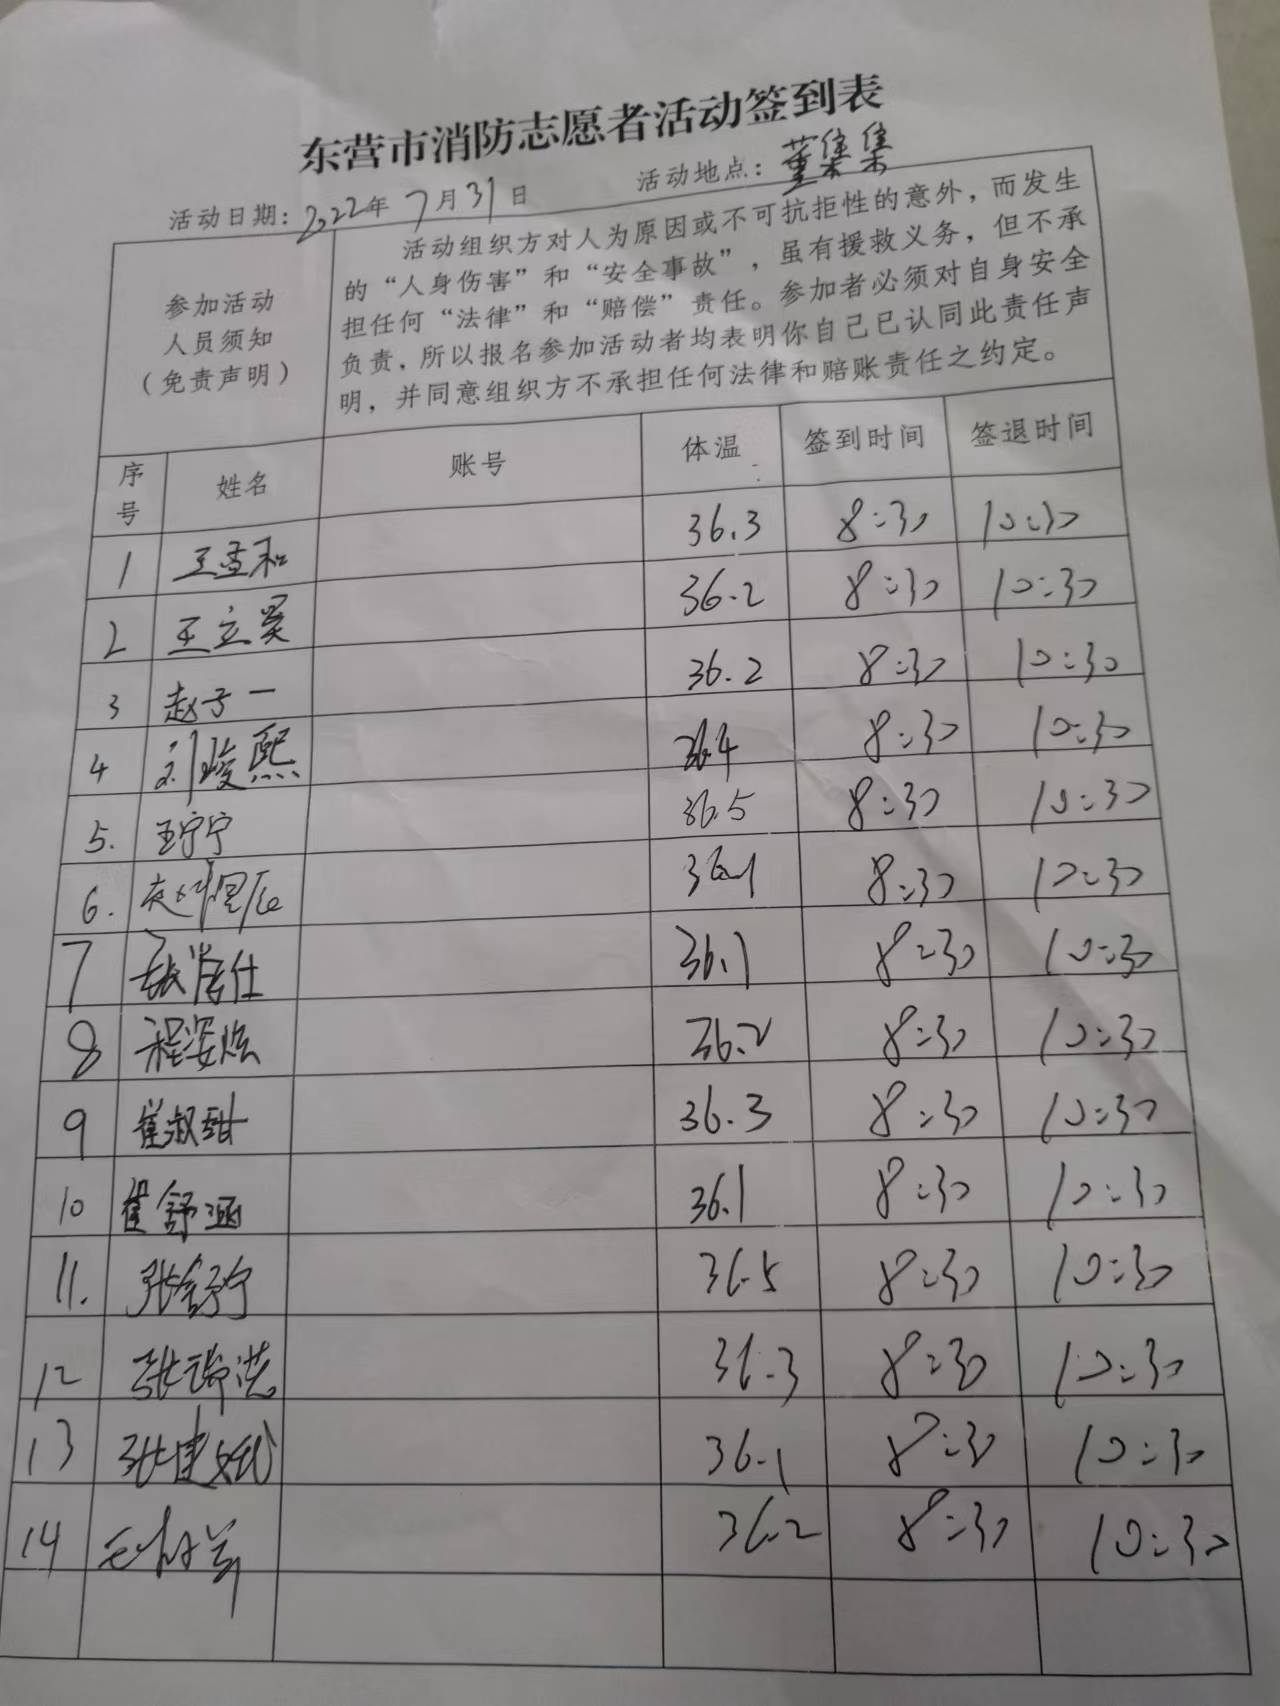 东营市消防志愿者活动签到表
活动日期：2022年7月31日 活动地点：董集集
参加活动
人员须知
（免责声明）
活动组织方对人为原因或不可抗拒性的意外，而发生
的“人身伤害”和“安全事故”，虽有援救义务，但不承
担任何“法律”和“赔偿”责任。参加者必须对自身安全
负责，所以报名参加活动者均表明你自己已认同此责任声
明，并同意组织方不承担任何法律和赔账责任之约定。
序号 姓名 账号 体温 签到时间 签退时间
1 王孟和 36.3 8:30 10:30
2 王立昊 36.2 8:30 10:30
3 赵子一 36.2 8:30 10:30
4 刘峻熙 36.4 8:30 10:30
5. 王宁宁 36.5 8:30 10:30
6. 36.1 8:30 10:30
7 36.1 8:30 10:30
8 程姿炫 36.2 8:30 10:30
9 崔淑甜 36.3 8:30 10:30
10 崔舒涵 36.1 8:30 10:30
11. 张舒宁 36.5 8:30 10:30
12 张瑞浩 36.3 8:30 10:30
13 张建 36.1 8:30 10:30
14 36.2 8:30 10:30